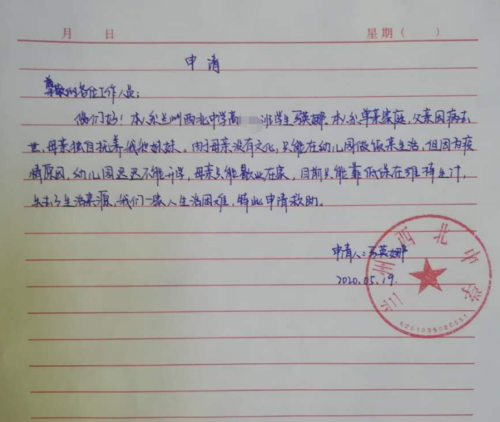 月 日 星期（ ）
申请
尊敬的各位工作人员：
您们好！本人系兰州西北中学高 班学生马英娜。本人系单亲家庭，父亲因病去
世，母亲独自抚养我和妹妹，由于母亲没有文化，只能在幼儿园做饭来生活，但因为疫
情原因，幼儿园迟迟不能开学，母亲只能歇业在家，目前只能靠低保在维持生计，
失去了生活来源，我们一家人生活困难，特此申请救助。
申请人：马英娜
2020.05.19.
兰州西北中学